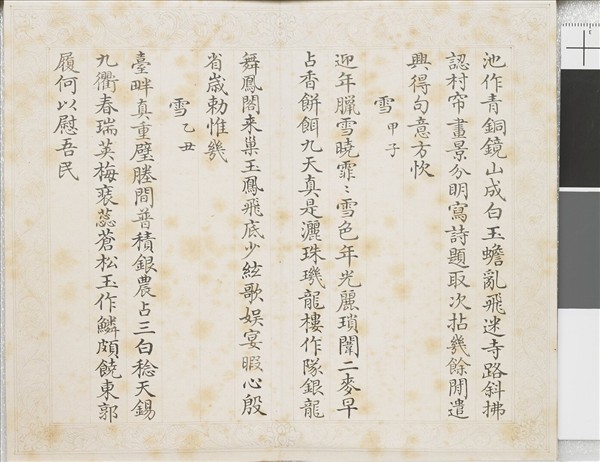 池作青銅鏡山成白玉蟾亂飛迷寺路斜拂
認村帘畫景分明寫詩題取次拈幾餘閒遣
興得句意方忺
雪甲子
迎年臘雪曉霏〻雪色年光麗瑣闈二麥早
占香餅餌九天真是灑珠璣龍樓作隊銀龍
舞鳳閣来巢玉鳳飛底少絃歌娛宴暇心殷
省歲勅惟幾
雪乙丑
臺畔真重璧塍間普積銀農占三白稔天錫
九衢春瑞英梅裒蕊蒼松玉作鱗頗饒東郭
履何以慰吾民